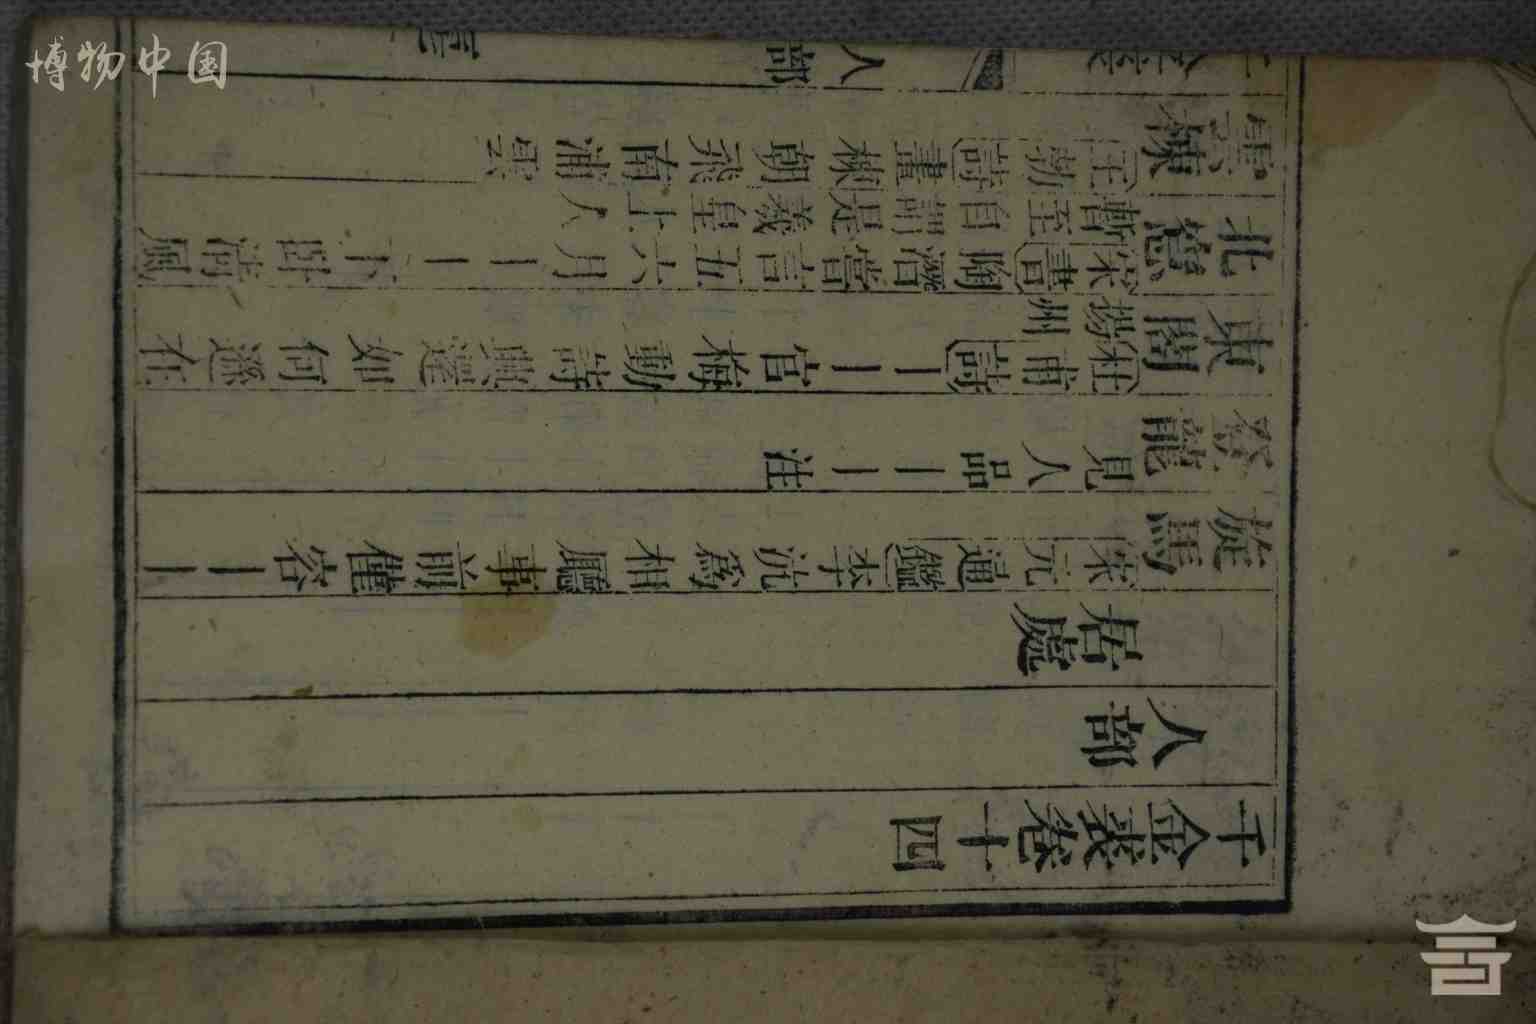 博物中国
千金裘卷十四
人部
居處
旋馬 宋元通鑑李沆爲相廳事前僅容丨丨
登龍 見人品丨丨注
東閣 杜甫詩丨丨官梅動詩興還如何遜在
揚州
北窻 宋書陶潛嘗言五六月丨丨丨下臥清風
暫至自謂是羲皇上人
雲棟 王勃詩畫棟朝飛南浦雲
千金裘 人部